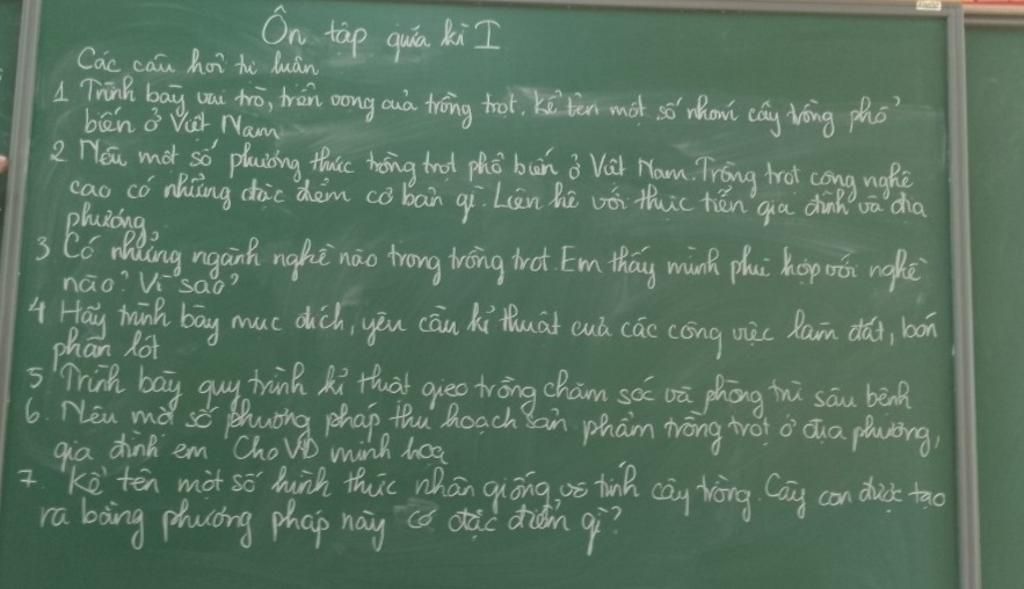 Ôn tập giữa kì I
Các câu hỏi tự luận
1 Trình bày vai trò, triển vọng của trồng trọt. Kể tên một số nhóm cây trồng phổ
biến ở Việt Nam
2 Nêu một số phương thức trồng trọt phổ biến ở Việt Nam. Trồng trọt công nghệ
cao có những đặc điểm cơ bản gì. Liên hệ với thực tiễn gia đình và địa
phương.
3 Có những ngành nghề nào trong trồng trọt. Em thấy mình phù hợp với nghề
nào? Vì sao?
4 Hãy trình bày mục đích, yêu cầu kĩ thuật của các công việc làm đất, bón
phân lót
5 Trình bày quy trình kĩ thuật gieo trồng chăm sóc và phòng trừ sâu bệnh
6. Nêu một số phương pháp thu hoạch sản phẩm trồng trọt ở địa phương,
gia đình em Cho VD minh hoạ
7. Kể tên một số hình thức nhân giống vô tính cây trồng. Cây con được tạo
ra bằng phương pháp này có đặc điểm gì?